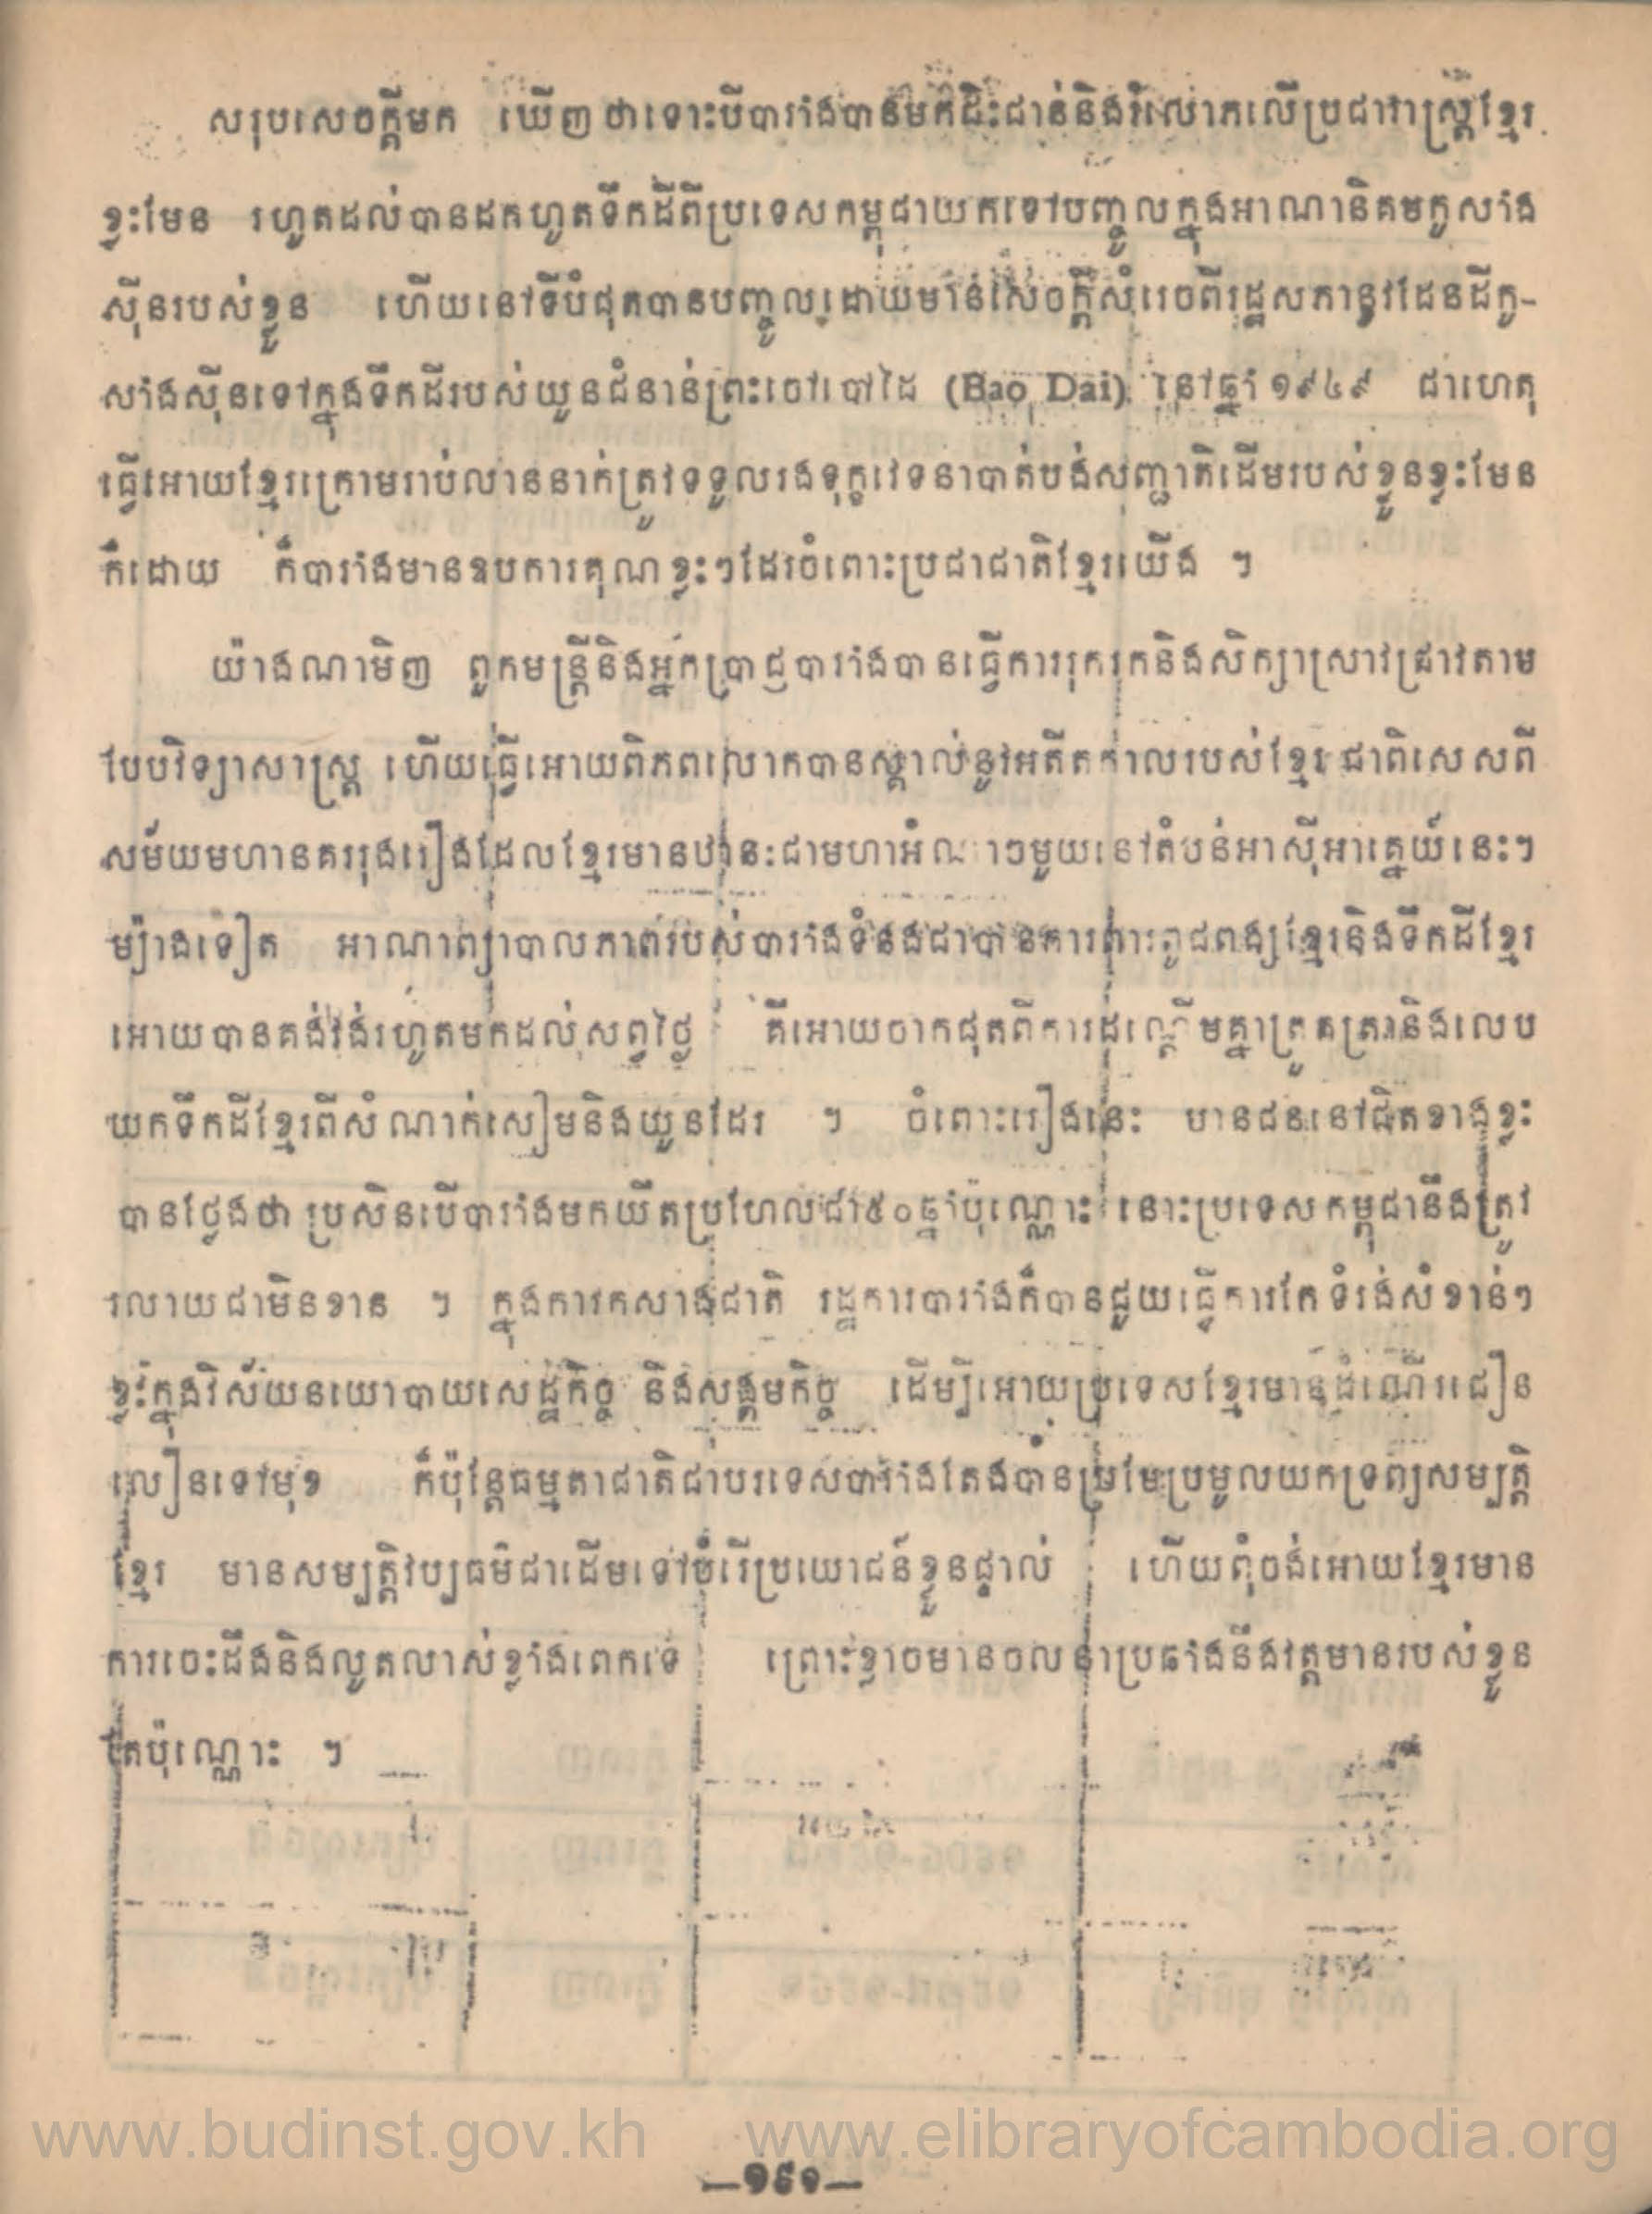 សរុបសេចក្តីមក ឃើញថាទោះបីបារាំងបានមកជិះជាន់និងរំលោភលើប្រជារាស្ត្រខ្មែរ
ខ្លះមែន រហូតដល់បានដកហូតទឹកដីពីប្រទេសកម្ពុជាយកទៅបញ្ចូលក្នុងអាណានិគមកូសាំង
ស៊ីនរបស់ខ្លួន ហើយនៅទីបំផុតបានបញ្ចូលដោយមានសេចក្តីសំរេចពីរដ្ឋសភានូវដែនដីកូ-
សាំងស៊ីនទៅក្នុងទឹកដីរបស់យួនជំនាន់ព្រះចៅបៅដៃ (Bao Dai) នៅឆ្នាំ ១៩៤៩ ជាហេតុ
ធ្វើអោយខ្មែរក្រោមរាប់លាននាក់ត្រូវទទួលរងទុក្ខវេទនាបាត់បង់សញ្ជាតិដើមរបស់ខ្លួនខ្លះមែន
ក៏ដោយ ក៏បារាំងមានឧបការគុណខ្លះៗដែរចំពោះប្រជាជាតិខ្មែរយើង ។
យ៉ាងណាមិញ ពួកមន្ត្រីនិងអ្នកប្រាជ្ញបារាំងបានធ្វើការរុករកនិងសិក្សាស្រាវជ្រាវតាម
បែបវិទ្យាសាស្ត្រ ហើយធ្វើអោយពិភពលោកបានស្គាល់នូវអតីតកាលរបស់ខ្មែរ ជាពិសេសពី
សម័យមហានគររុងរឿងដែលខ្មែរមានឋានៈជាមហាអំណាចមួយនៅតំបន់អាស៊ីអាគ្នេយ៍នេះ។
ម្យ៉ាងទៀត អាណាព្យាបាលភាពរបស់បារាំងទំនងជាបានការពារពូជពង្សខ្មែរនិងទឹកដីខ្មែរ
អោយបានគង់វង់រហូតមកដល់សព្វថ្ងៃ គឺអោយចាកផុតពីការដណ្តើមគ្នាត្រួតត្រានិងលេប
យកទឹកដីខ្មែរពីសំណាក់សៀមនិងយួនដែរ ។ ចំពោះរឿងនេះ មានជននៅជិតខាងខ្លះ
បានថ្លែងថា ប្រសិនបើបារាំងមកយឺតប្រហែលជា៥០ឆ្នាំប៉ុណ្ណោះ នោះប្រទេសកម្ពុជានឹងត្រូវ
រលាយជាមិនខាន ។ ក្នុងការកសាងជាតិ រដ្ឋការបារាំងក៏បានជួយធ្វើការកែទំរង់សំខាន់ៗ
ខ្លះក្នុងវិស័យនយោបាយសេដ្ឋកិច្ច និងសង្គមកិច្ច ដើម្បីអោយប្រទេសខ្មែរមានដំណើរជឿន
លឿនទៅមុខ ក៏ប៉ុន្តែធម្មតាជាតិជាបរទេសបារាំងតែងបានប្រមែប្រមូលយកទ្រព្យសម្បត្តិ
ខ្មែរ មានសម្បត្តិវប្បធម៌ជាដើមទៅបំរើប្រយោជន៍ខ្លួនផ្ទាល់ ហើយពុំចង់អោយខ្មែរមាន
ការចេះដឹងនិងលូតលាស់ខ្លាំងពេកទេ ព្រោះខ្លាចមានចលនាប្រឆាំងនឹងវត្តមានរបស់ខ្លួន
តែប៉ុណ្ណោះ ។
www.budinst.gov.kh www.elibraryofcambodia.org